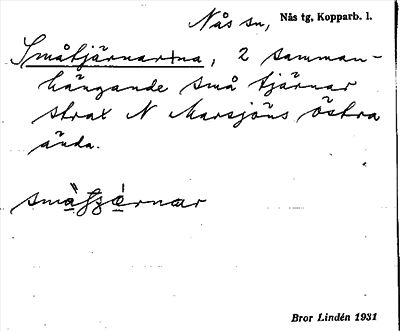 Nås sn, Nås tg, Kopparb. l.
Småtjärnarna, 2 samman-
hängande små tjärnar
strax N Marsjöns östra
ända.
Bror Lindén 1931